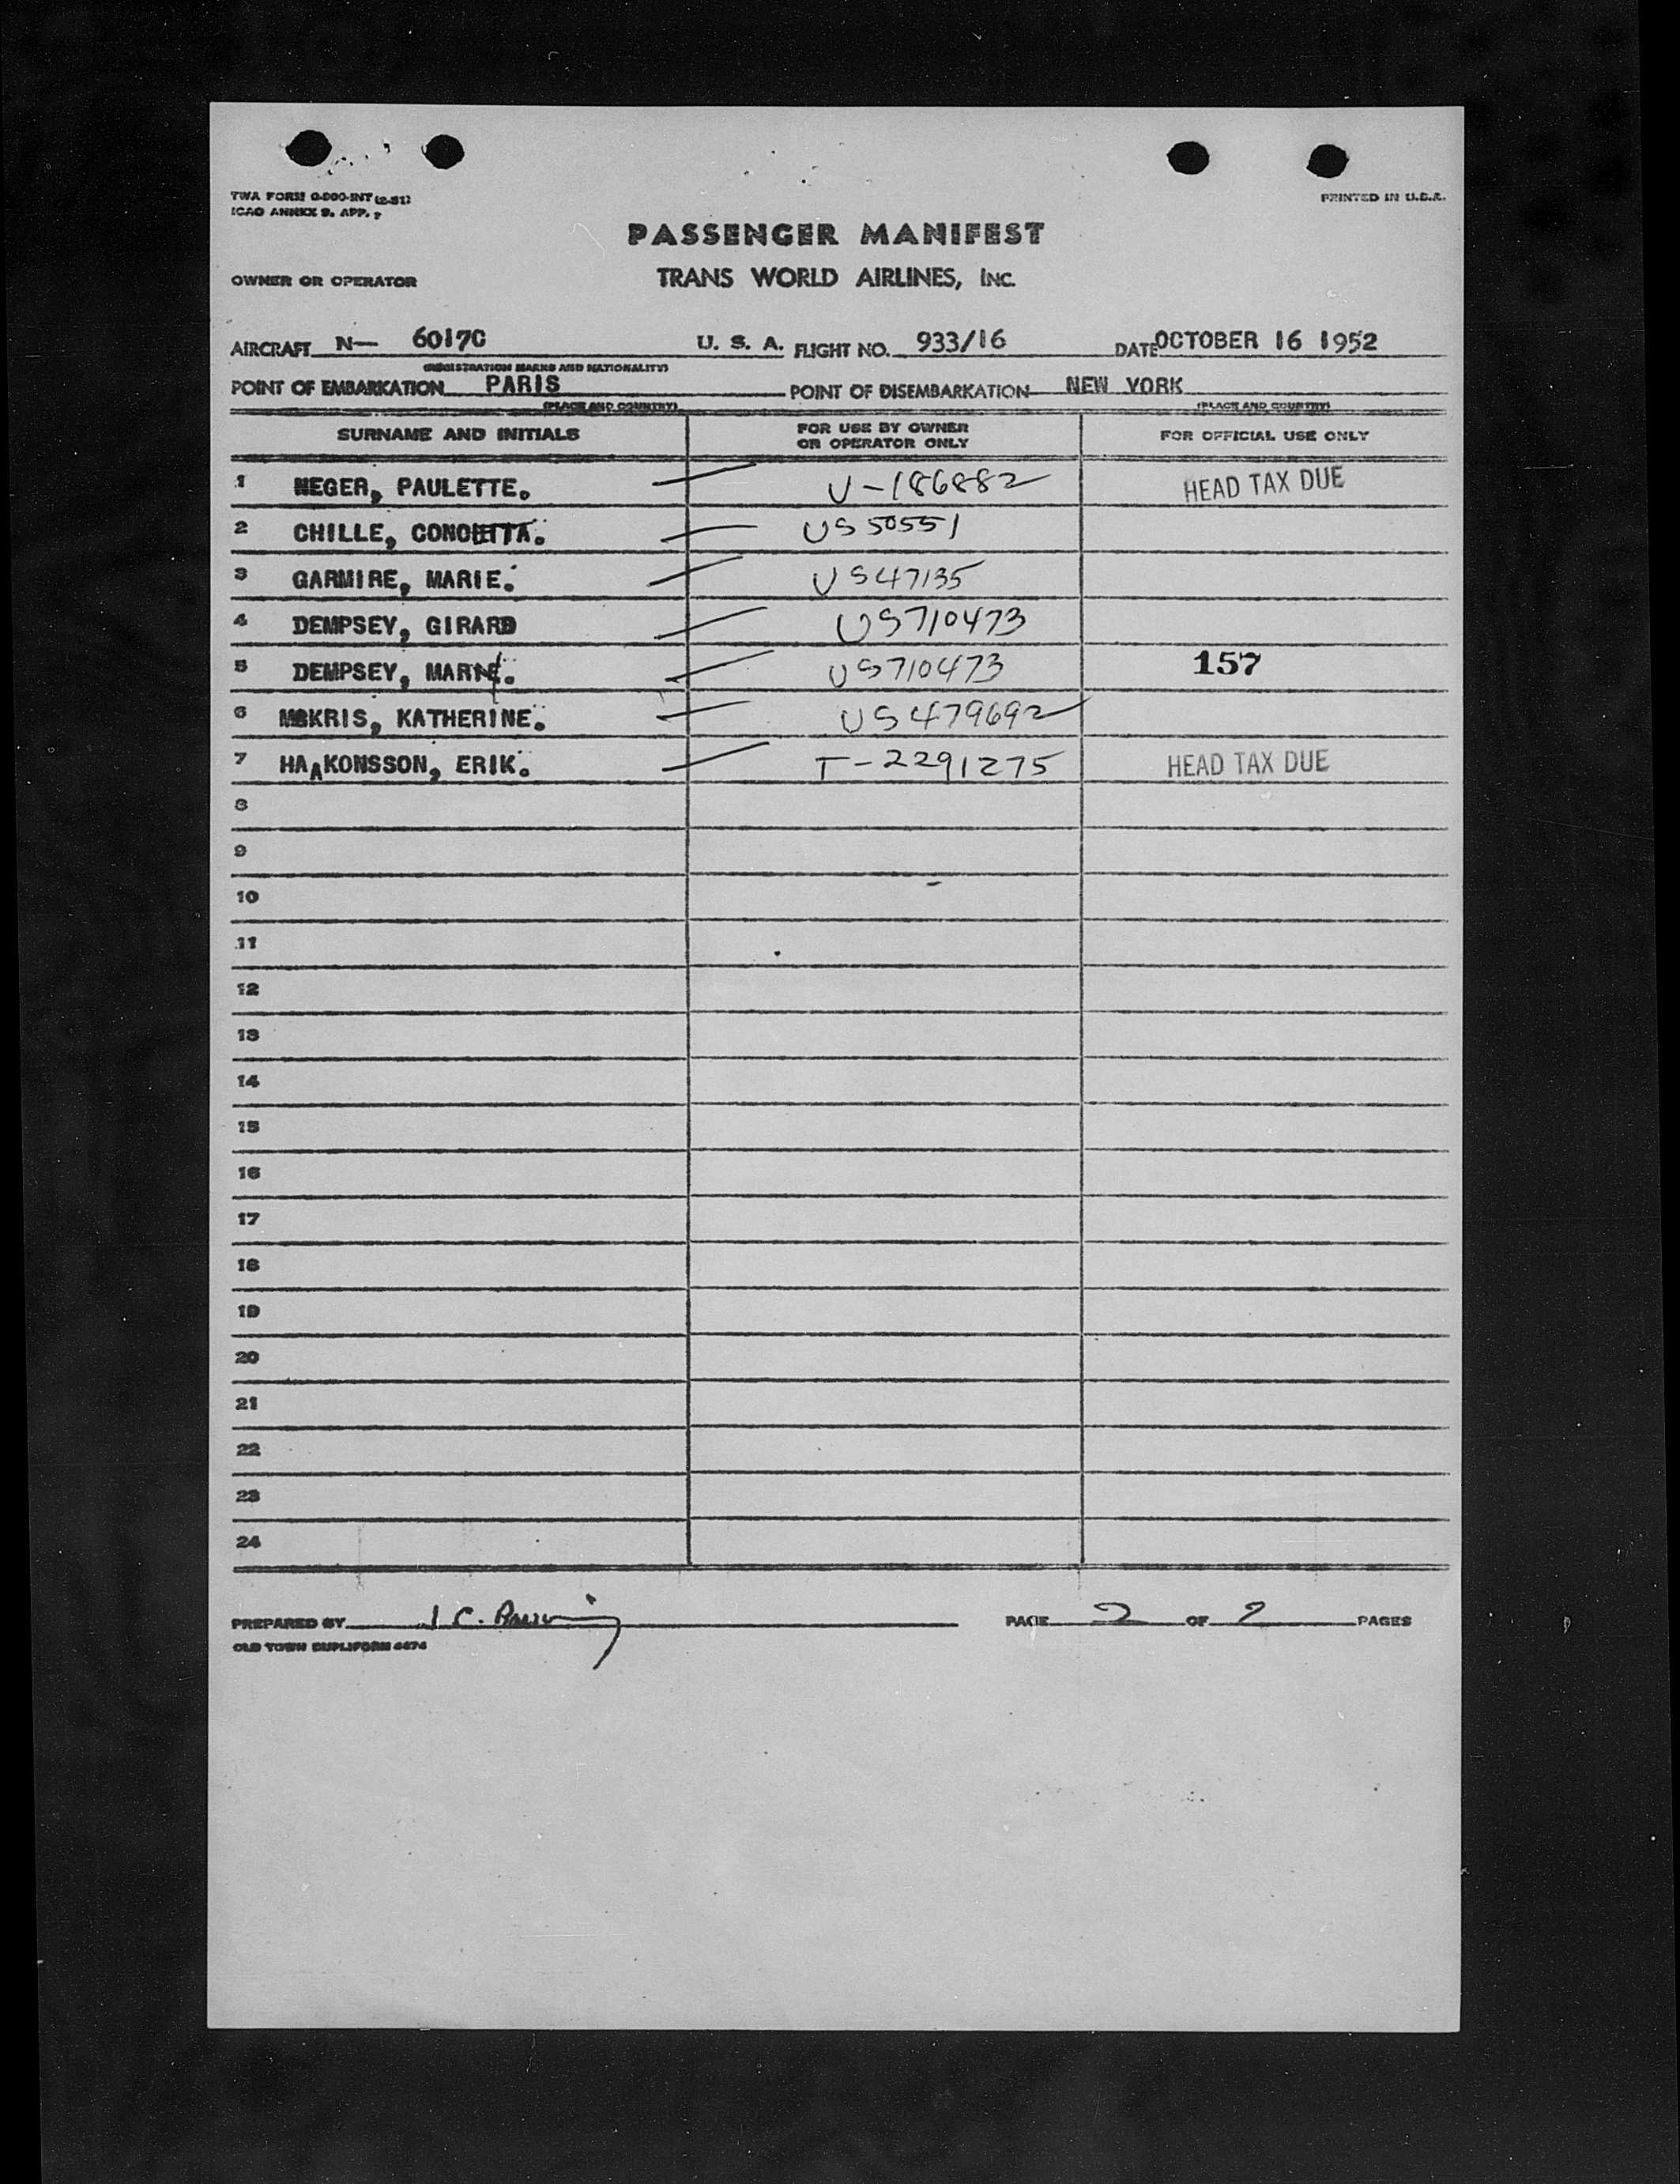 TWA FORM O-800-INT (2-51)
ICAO ANNEX 9, APP.
PRINTED IN U.S.A.
PASSENGER MANIFEST
OWNER OR OPERATOR TRANS WORLD AIRLINES, INC.
AIRCRAFT N— 6017C U. S. A. FLIGHT NO. 933/16 DATE OCTOBER 16 1952
(REGISTRATION MARKS AND NATIONALITY)
POINT OF EMBARKATION PARIS POINT OF DISEMBARKATION NEW YORK
(PLACE AND COUNTRY) (PLACE AND COUNTRY)
SURNAME AND INITIALS FOR USE BY OWNER OR OPERATOR ONLY FOR OFFICIAL USE ONLY
1 NEGER, PAULETTE. V-186882 HEAD TAX DUE
2 CHILLE, CONCETTA. US 50551
3 GARMIRE, MARIE. US 47135
4 DEMPSEY, GIRARD US710473
5 DEMPSEY, US710473 157
6 KATHERINE. US 479692
7 HAAKONSSON, ERIK. T-2291275 HEAD TAX DUE
8
9
10
11
12
13
14
15
16
17
18
19
20
21
22
23
24
PREPARED BY J. C. PAGE 2 OF 2 PAGES
OLD TOWN DUPLIFORM 4474